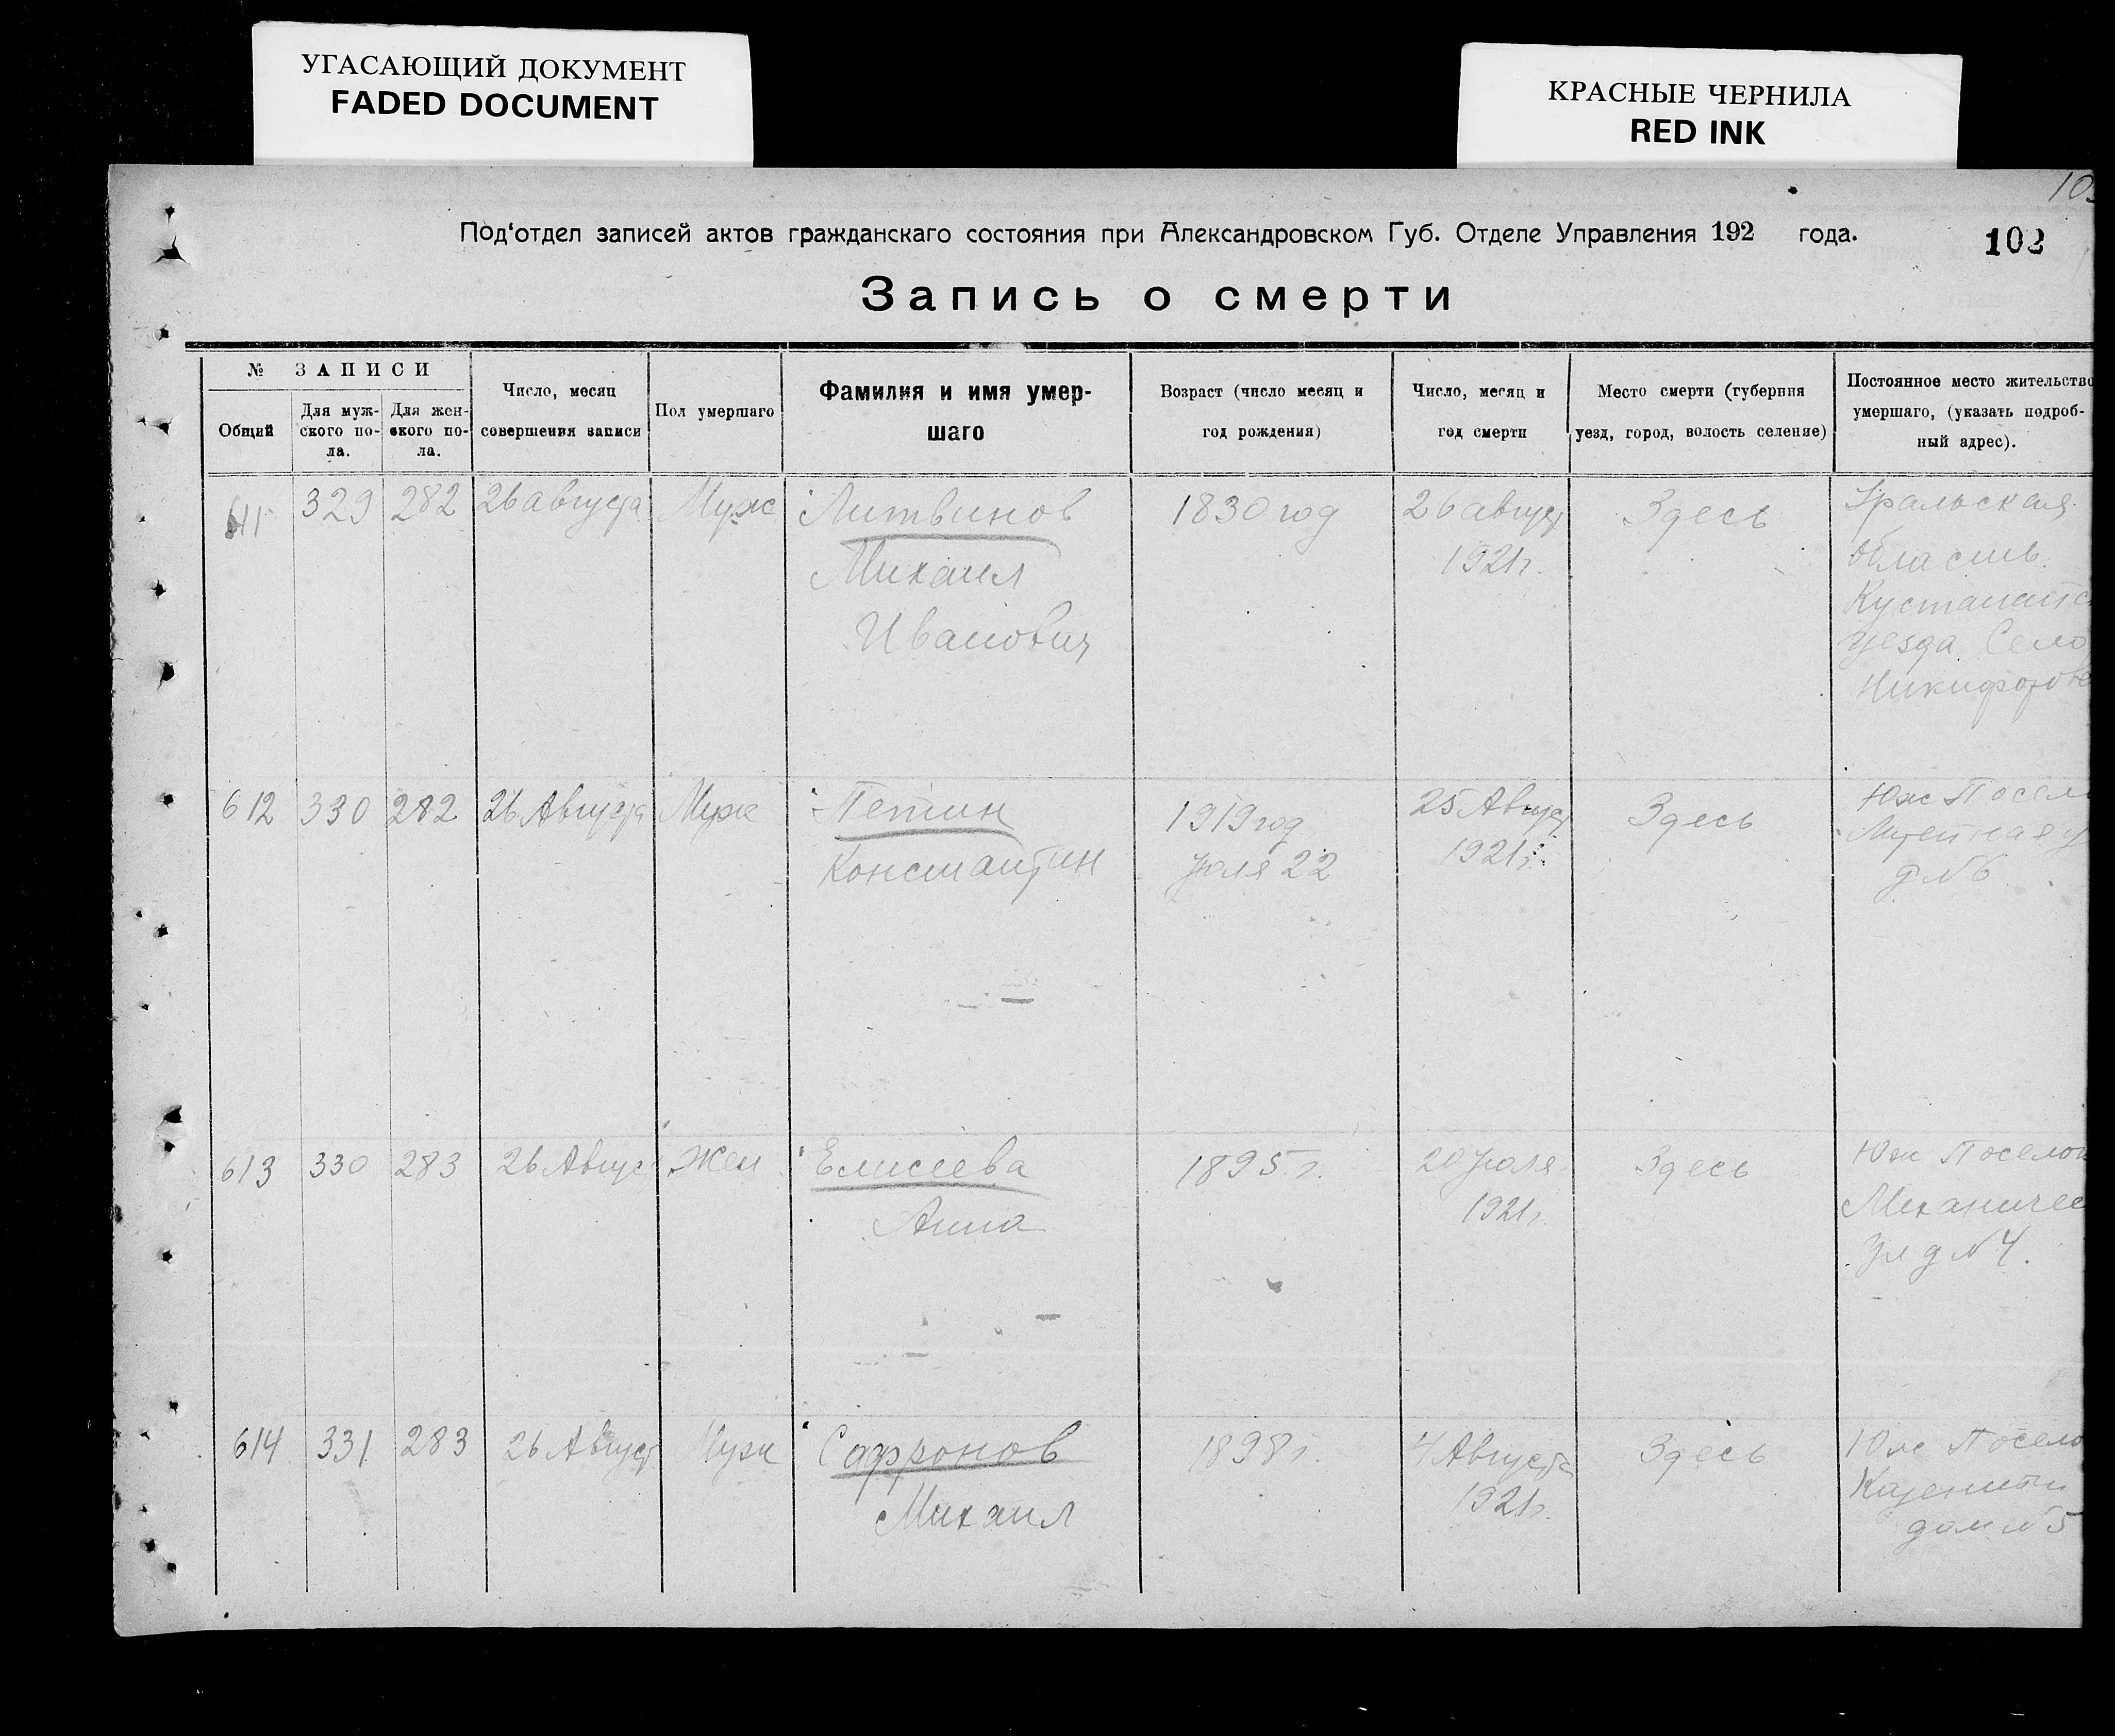 УГАСАЮЩИЙ ДОКУМЕНТ
FADED DOCUMENT
КРАСНЫЕ ЧЕРНИЛА
RED INK
Под'отдел записей актов гражданскаго состояния при Александровском Губ. Отделе Управления 192 года.
102
Запись о смерти
№ ЗАПИСИ
Общий
Для муж-
ского по-
ла.
Для жен-
ского по-
ла.
Число, месяц
совершения записи
Пол умершаго
Фамилия и имя умер-
шаго
Возраст (число месяц и
год рождения)
Число, месяц и
год смерти
Место смерти (губерния
уезд, город, волость селение)
Постоянное место жительство
умершаго, (указать подроб-
ный адрес).
611 329 282 26 августа Муж Литвинов 1830 год 26 август Здесь Уральская
Михаил 1921г. область
Иванович Кустанайс
уезда Село
612 330 282 26 Августа Муж Петин 1919 год 25 Август Здесь Юж Посел
Константин Июля 22 1921г.
д №6
613 330 283 26 Авгус Жен Елисеева 1895 г. 20 Июля Здесь Юж Поселок
Анна 1921г. Механичес
Ул д №4.
614 331 283 26 Август Муж Сафронов 1898г. 4 Августа Здесь Юж Посело
Михаил 1921г.
дом №5